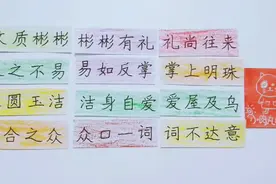 文质彬彬 彬彬有礼 礼尚往来
之不易 易如反掌 掌上明珠
圆玉洁 洁身自爱 爱屋及乌
合之众 众口一词 词不达意